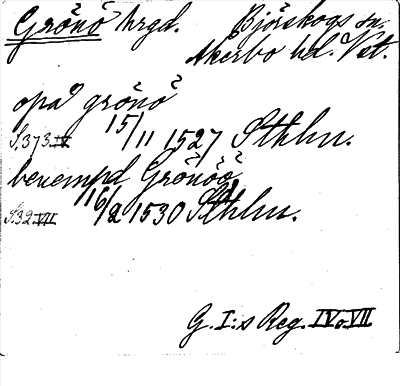 Grönö hrgd. Björskogs sn.
Åkerbo hd. Vstl.
opaa grönö
S.373.IV 15/11 1527 Sthlm.
benempd Grönöö
S32.VII 16/2 1530 Sthlm.
G. I:s Reg. IV o. VII